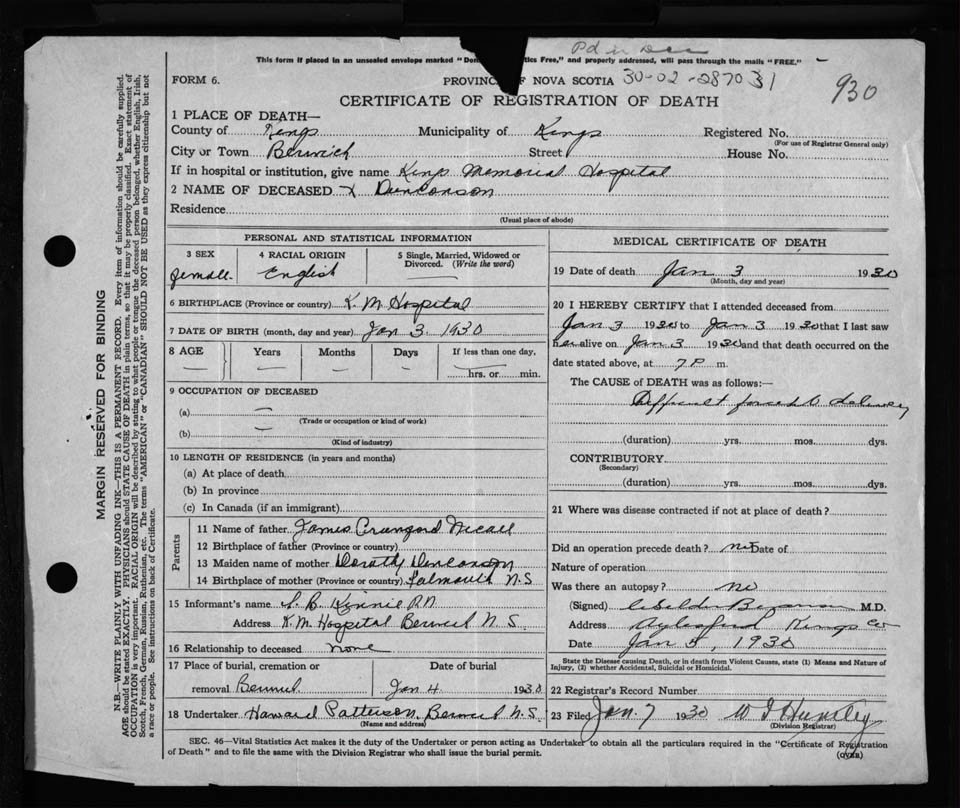 Pd in Dec
This form if placed in an unsealed envelope marked "Dom tics Free," and properly addressed, will pass through the mails "FREE."
FORM 6. PROVINC OF NOVA SCOTIA 30-02-287031
930
CERTIFICATE OF REGISTRATION OF DEATH
1 PLACE OF DEATH—
County of Kings Municipality of Kings Registered No.
(For use of Registrar General only)
City or Town Berwick Street House No.
If in hospital or institution, give name Kings Memorial Hospital
2 NAME OF DECEASED X Duncanson
Residence
(Usual place of abode)
PERSONAL AND STATISTICAL INFORMATION
3 SEX 4 RACIAL ORIGIN 5 Single, Married, Widowed or
Divorced. (Write the word)
female English
6 BIRTHPLACE (Province or country) K. M. Hospital
7 DATE OF BIRTH (month, day and year) Jan 3 1930
8 AGE Years Months Days If less than one day,
— — — — hrs. or min.
9 OCCUPATION OF DECEASED
(a) —
(Trade or occupation or kind of work)
(b) —
(Kind of industry)
10 LENGTH OF RESIDENCE (in years and months)
(a) At place of death
(b) In province
(c) In Canada (if an immigrant)
Parents
11 Name of father James Crawford
12 Birthplace of father (Province or country)
13 Maiden name of mother Dorothy Duncanson
14 Birthplace of mother (Province or country) Falmouth N.S
15 Informant's name S. B. Kinnie R.N.
Address K.M. Hospital Berwick N.S.
16 Relationship to deceased none
17 Place of burial, cremation or Date of burial
removal Berwick Jan 4 1930
18 Undertaker Howard Patterson, Berwick N.S.
(Name and address)
MEDICAL CERTIFICATE OF DEATH
19 Date of death Jan 3 1930
(Month, day and year)
20 I HEREBY CERTIFY that I attended deceased from
Jan 3 1930 to Jan 3 1930 that I last saw
her alive on Jan 3 1930 and that death occurred on the
date stated above, at 7 P m.
The CAUSE of DEATH was as follows:—
Difficult forceps delivery
(duration) yrs. mos. dys.
CONTRIBUTORY
(Secondary)
(duration) yrs. mos. dys.
21 Where was disease contracted if not at place of death?
Did an operation precede death? no Date of
Nature of operation
Was there an autopsy? no
(Signed) M.D.
Address Aylesford Kings Co
Date Jan 5, 1930
State the Disease causing Death, or in death from Violent Causes, state (1) Means and Nature of
Injury, (2) whether Accidental, Suicidal or Homicidal.
22 Registrar's Record Number
23 Filed Jan. 7 1930 W I Huntley
(Division Registrar)
SEC. 46—Vital Statistics Act makes it the duty of the Undertaker or person acting as Undertaker to obtain all the particulars required in the "Certificate of Registration
of Death" and to file the same with the Division Registrar who shall issue the burial permit.
(OVER)
MARGIN RESERVED FOR BINDING
N.B.—WRITE PLAINLY WITH UNFADING INK—THIS IS A PERMANENT RECORD. Every item of information should be carefully supplied.
AGE should be stated EXACTLY. PHYSICIANS should STATE CAUSE OF DEATH in plain terms, so that it may be properly classified. Exact statement of
OCCUPATION is very important. RACIAL ORIGIN will be described by stating to what people or tongue the deceased person belonged, whether English, Irish,
Scotch, French, German, Russian, Ruthenian, etc. The terms "AMERICAN" or "CANADIAN" SHOULD NOT BE USED as they express citizenship but not
a race or people. See instructions on back of Certificate.